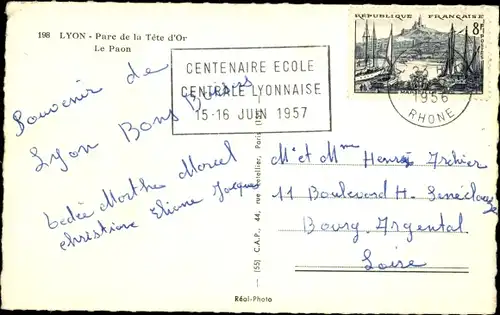 198 LYON - Parc de la Tête d'Or
Le Paon
CENTENAIRE ECOLE
CENTRALE LYONNAISE
15-16 JUIN 1957
REPUBLIQUE FRANÇAISE
8F
1956
RHONE
Souvenir de
Lyon Bons Baisers
Dédée Marthe Marcel
Christine Eliane Jacques
Mr et Mme Henri Archier
11 Boulevard H. Sénéclauze
Bourg Argental
Loire
(55) C.A.P., 44, rue Paris
Réal-Photo